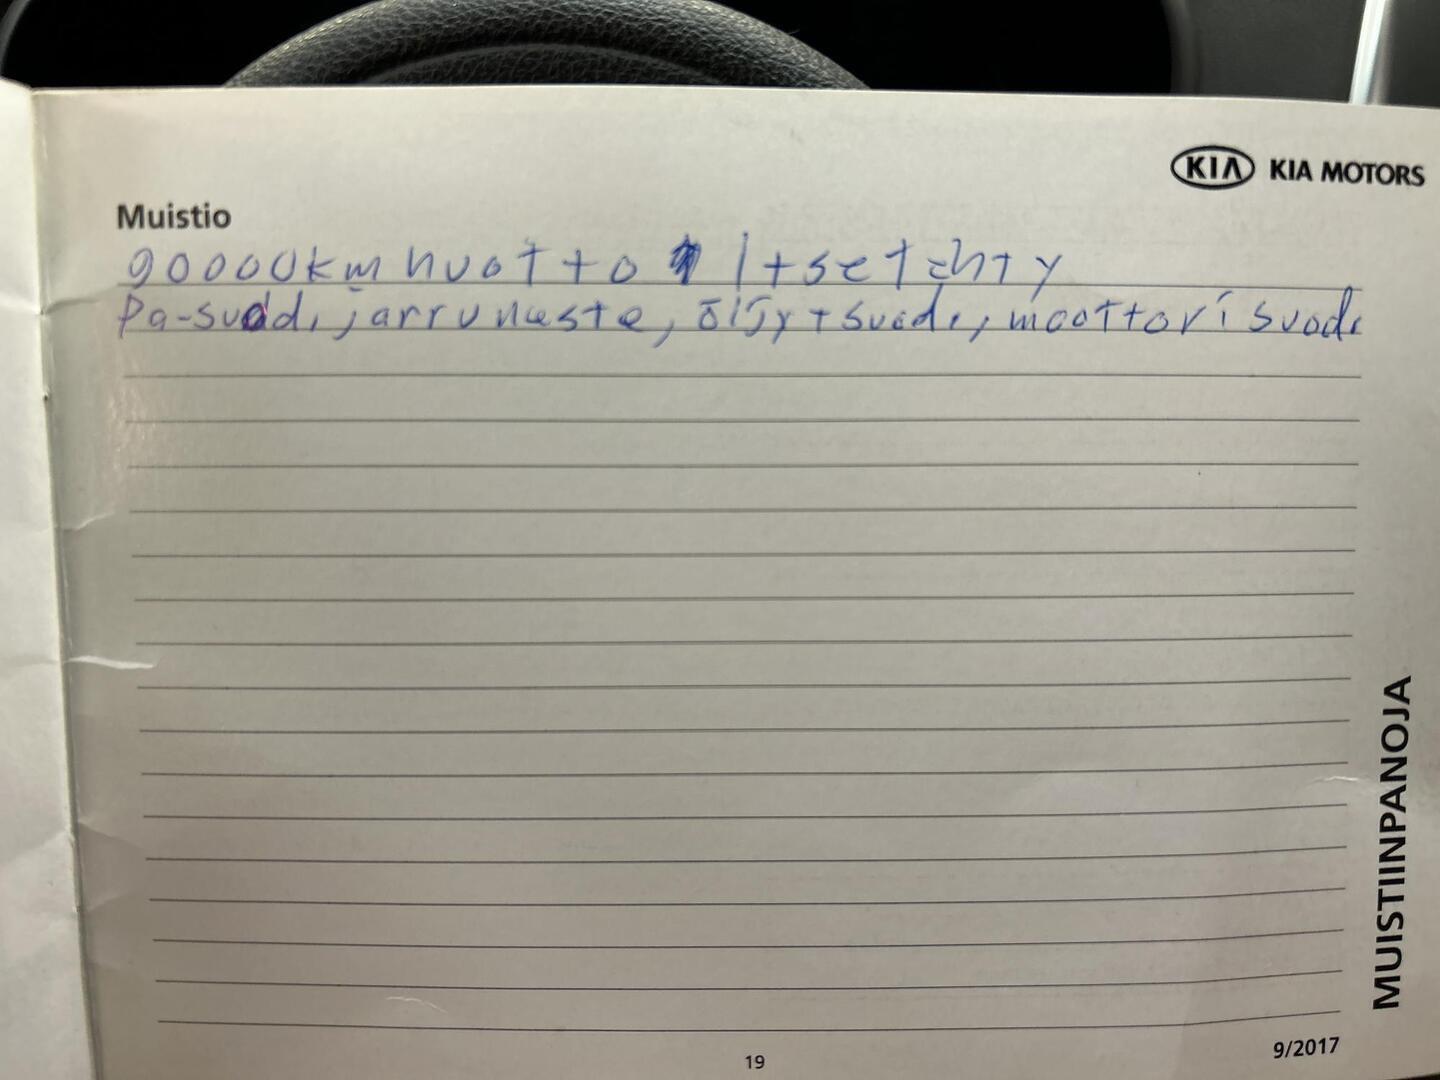 KIA KIA MOTORS
Muistio
90000km huotto itse tehty
Pa-suod., jarruneste, öljy+suod., moottorisuod.
MUISTIINPANOJA
19
9/2017